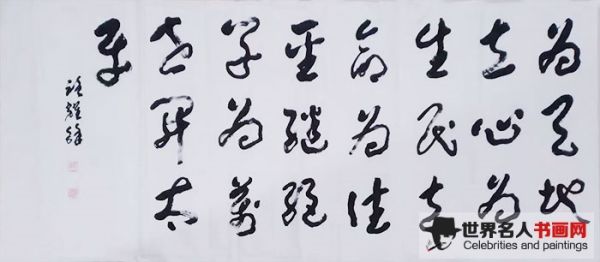 為天地
立心為
生民立
命為往
聖繼絕
學為萬
世開太
平
世界名人书画网
Celebrities and paintings